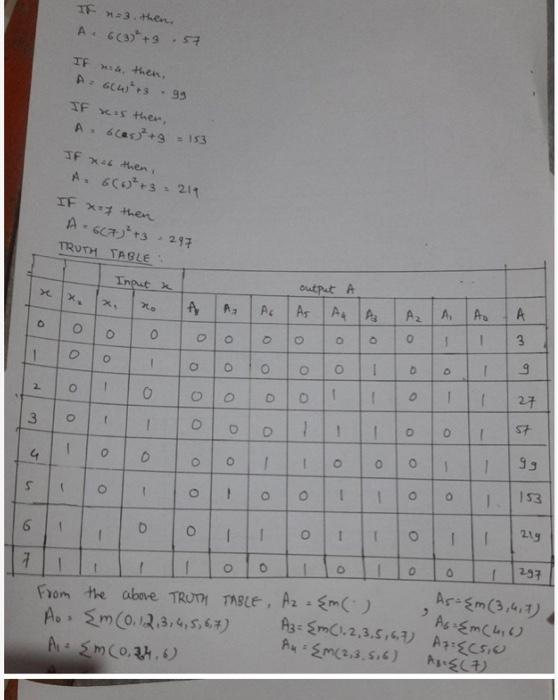 IF x=3, then,
A = 6(3)²+3 = 57
IF x=4, then,
A = 6(4)²+3 = 99
IF x=5 then,
A = 6(5)²+3 = 153
IF x=6 then,
A = 6(6)²+3 = 219
IF x=7 then
A = 6(7)²+3 = 297
TRUTH TABLE :
Input x output A
x x₂ x₁ x₀ A₈ A₇ A₆ A₅ A₄ A₃ A₂ A₁ A₀ A
0 0 0 0 0 0 0 0 0 0 0 1 1 3
1 0 0 1 0 0 0 0 0 1 0 0 1 9
2 0 1 0 0 0 0 0 1 1 0 1 1 27
3 0 1 1 0 0 0 1 1 1 0 0 1 57
4 1 0 0 0 0 1 1 0 0 0 1 1 99
5 1 0 1 0 1 0 0 1 1 0 0 1 153
6 1 1 0 0 1 1 0 1 1 0 1 1 219
7 1 1 1 1 0 0 1 0 1 0 0 1 297
From the above TRUTH TABLE, A₂ = Σm( ) , A₅=Σm(3,4,7)
A₀ = Σm(0,1,2,3,4,5,6,7) A₃=Σm(1,2,3,5,6,7) A₆=Σm(4,6)
A₁ = Σm(0,2,4,6) A₄ = Σm(2,3,5,6) A₇=Σ(5,6)
A₈=Σ(7)